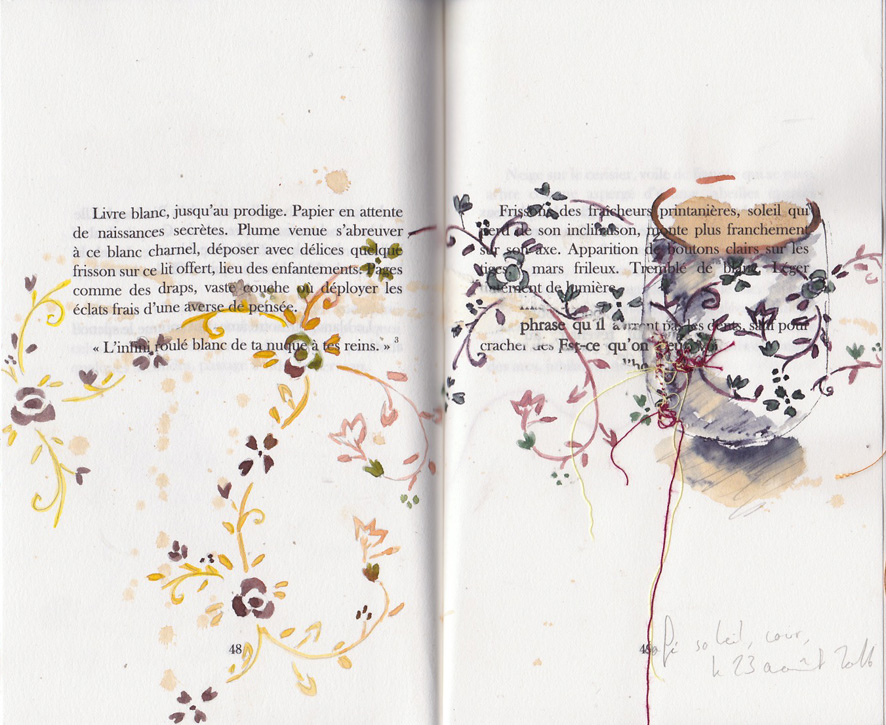 Livre blanc, jusqu'au prodige. Papier en attente
de naissances secrètes. Plume venue s'abreuver
à ce blanc charnel, déposer avec délices quelque
frisson sur ce lit offert, lieu des enfantements. Pages
comme des draps, vaste couche où déployer les
éclats frais d'une averse de pensée.
« L'infini roulé blanc de ta nuque à tes reins. » 3
48
Frissons des fraîcheurs printanières, soleil qui
perd de son inclinaison, monte plus franchement
sur son axe. Apparition de boutons clairs sur les
tiges mars frileux. Tremblé de blanc. Léger
de lumière.
phrase qu'il pas les dents, sauf pour
cracher des Est-ce qu'on
48
soleil, cour,
le 23 août 2016